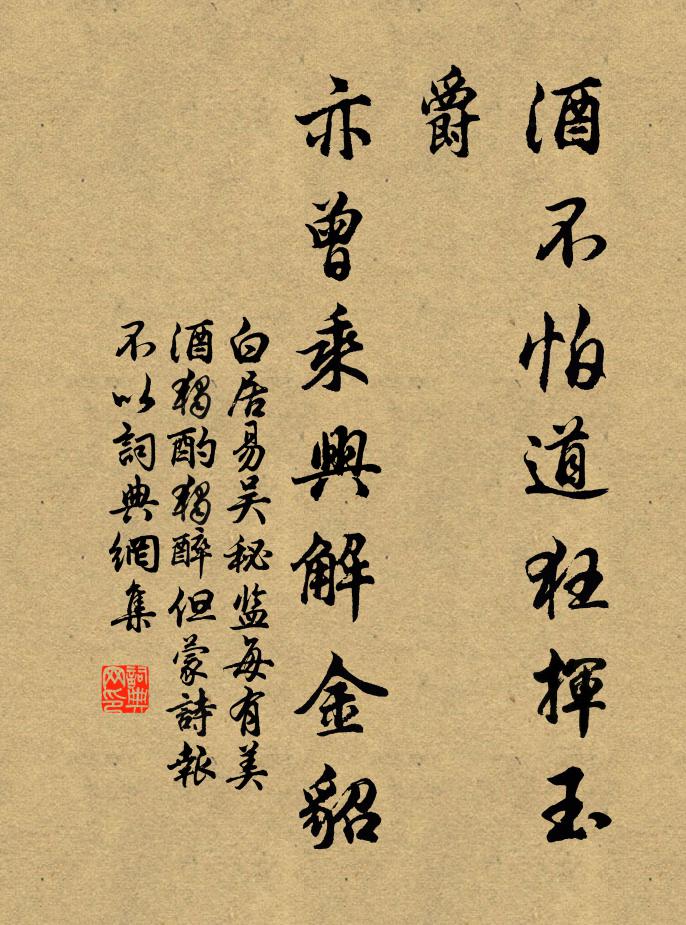 酒不怕道狂揮玉
爵
亦曾乘興解金貂
白居易吴秘监每有美
酒獨酌獨醉但蒙詩報
不以詞典網集
詞典
网印